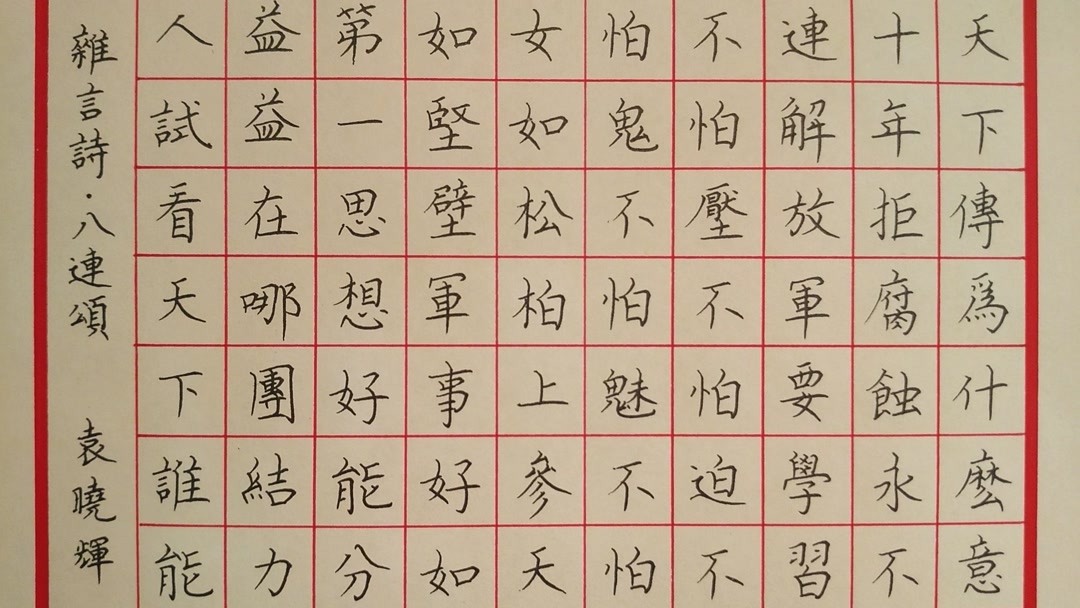 天下傳爲什麽意
十年拒腐蝕永不
連解放軍要學習
不怕壓不怕迫不
怕鬼不怕魅不怕
女如松柏上參天
如堅壁軍事好如
第一思想好能分
益益在哪團結力
人試看天下誰能
雜言詩·八連頌 袁曉輝